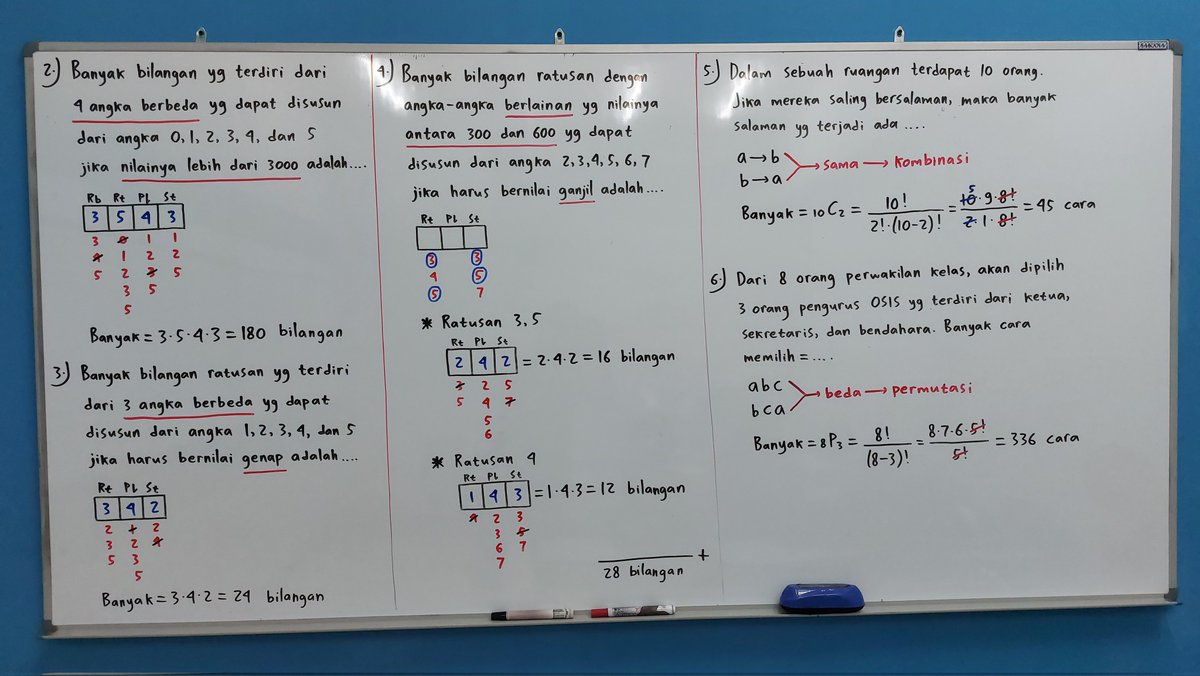 2.) Banyak bilangan yg terdiri dari
4 angka berbeda yg dapat disusun
dari angka 0, 1, 2, 3, 4, dan 5
jika nilainya lebih dari 3000 adalah....
Rb Rt Pl St
3 5 4 3
3 0 1 1
4 1 2 2
5 2 3 5
3 5
5
Banyak = 3·5·4·3 = 180 bilangan
3.) Banyak bilangan ratusan yg terdiri
dari 3 angka berbeda yg dapat
disusun dari angka 1, 2, 3, 4, dan 5
jika harus bernilai genap adalah....
Rt Pl St
3 4 2
2 1 2
3 2 4
5 3
5
Banyak = 3·4·2 = 24 bilangan
4.) Banyak bilangan ratusan dengan
angka-angka berlainan yg nilainya
antara 300 dan 600 yg dapat
disusun dari angka 2,3,4,5,6,7
jika harus bernilai ganjil adalah....
Rt Pl St
3 3
4 5
5 7
* Ratusan 3,5
Rt Pl St
2 4 2 = 2·4·2 = 16 bilangan
3 2 5
5 4 7
5
6
* Ratusan 4
Rt Pl St
1 4 3 = 1·4·3 = 12 bilangan
4 2 3
3 5
6 7
7
+
28 bilangan
5.) Dalam sebuah ruangan terdapat 10 orang.
Jika mereka saling bersalaman, maka banyak
salaman yg terjadi ada ....
a → b
b → a
→ sama → kombinasi
Banyak = 10C2 = 10! / 2!·(10-2)! = 5 10·9·8! / 2·1·8! = 45 cara
6.) Dari 8 orang perwakilan kelas, akan dipilih
3 orang pengurus OSIS yg terdiri dari ketua,
sekretaris, dan bendahara. Banyak cara
memilih = ....
abc
bca
→ beda → permutasi
Banyak = 8P3 = 8! / (8-3)! = 8·7·6·5! / 5! = 336 cara